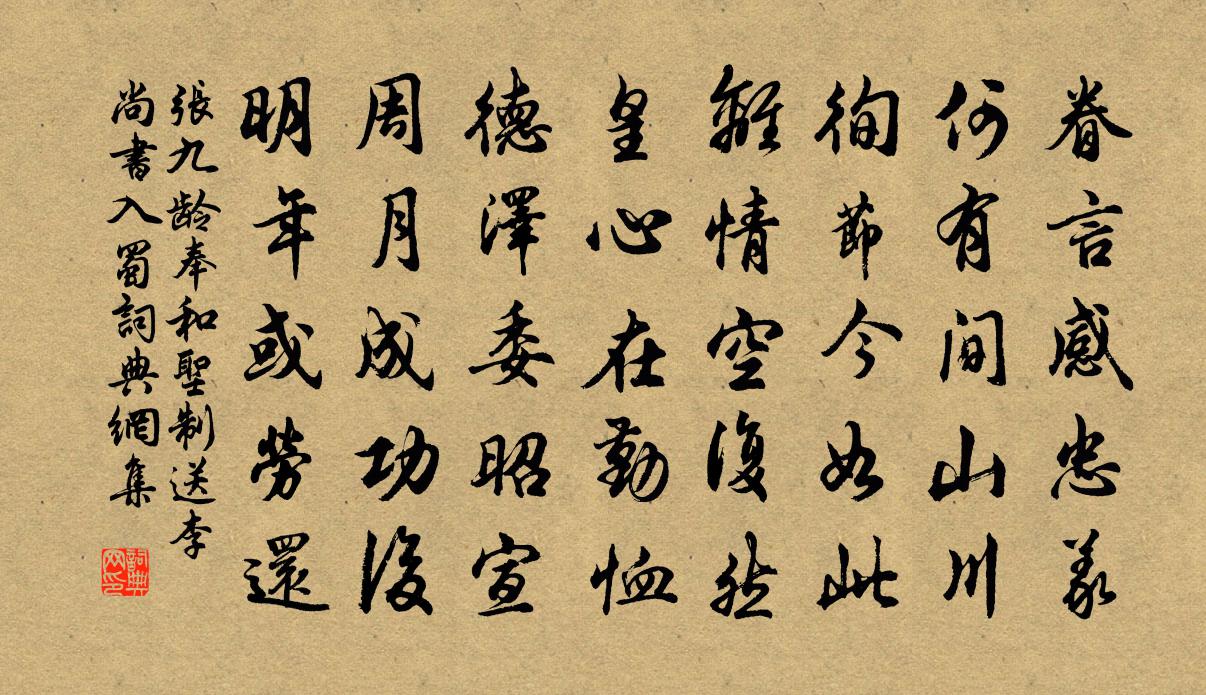 眷言感忠義
何有間山川
徇節今如此
離情空復然
皇心在勤恤
德澤委昭宣
周月成功後
明年或勞還
張九齡奉和聖制送李
尚書入蜀詞典網集
詞典網印